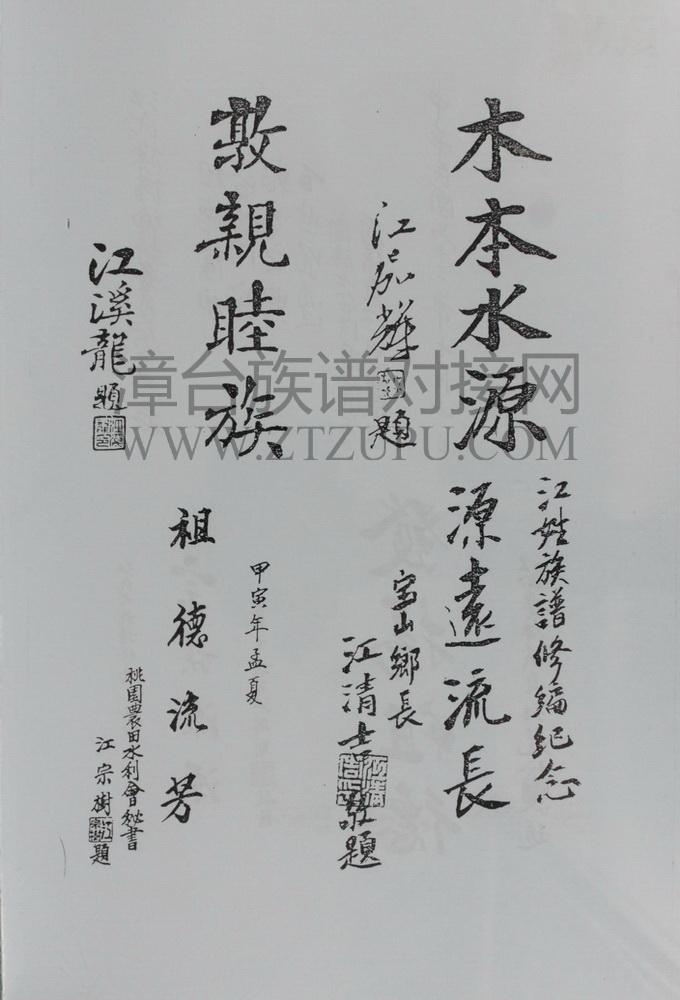 木本水源
江㷓輝題
敦親睦族
江溪龍題
江姓族譜修編紀念
源遠流長
宝山鄉長
江清吉敬題
甲寅年孟夏
祖德流芳
桃園農田水利會秘書
江宗樹題
漳台族谱对接网
WWW.ZTZUPU.COM